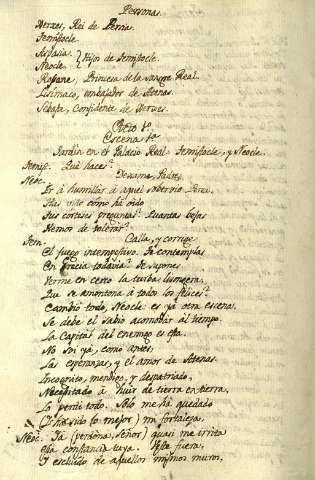 Personas
Xerxes, Rei de Persia.
Temistocle.
Aspasia
Neocle. } Hijos de Temistocle.
Roxane, Princesa de la sangre Real.
Lisimaco, embajador de Atenas.
Sebaste, Confidente de Xerxes.
Acto 1º
Escena 1ª
Jardin en el Palacio Real. Temistocle, y Neocle.
Temist. Qué haces?
Neoc. Dexame, Padre,
Ir á humillar á aquel sobervio
Has visto como ha oido
Sus corteses preguntas? Cuantas
Hemos de tolerar?
Tem. Calla, y corrige
El fuego intempestivo. Te contemplas
En Grecia todavia? Te supones
Verme en cerco la turba lisongera
Que se amontona á todos los felices?
Cambió todo, Neocle: es ya otra escena.
Se debe el sabio acomodar al tiempo.
La Capital del enemigo es esta.
No soi ya, como antes,
Las esperanzas, y el amor de Atenas.
Incognito, mendigo, y despatriado,
Necesitado á huir de tierra en tierra,
Lo perdi todo. Solo me ha quedado
(I ha sido lo mejor) mi fortaleza.
Neoc. Ya (perdona, señor) quasi me irrita
esta constancia tuya. Verte fuera,
I excluido de aquellos mismos muros,